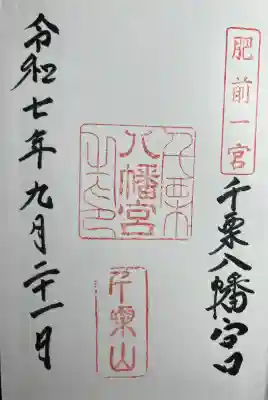 肥前一宮
千栗八幡宮
千栗八幡宮
千栗山
令和七年九月二十一日